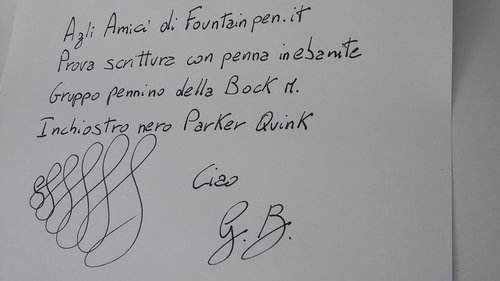 Agli Amici di Fountainpen.it
Prova scrittura con penna in ebanite
Gruppo pennino della Bock M.
Inchiostro nero Parker Quink
Ciao
G. B.